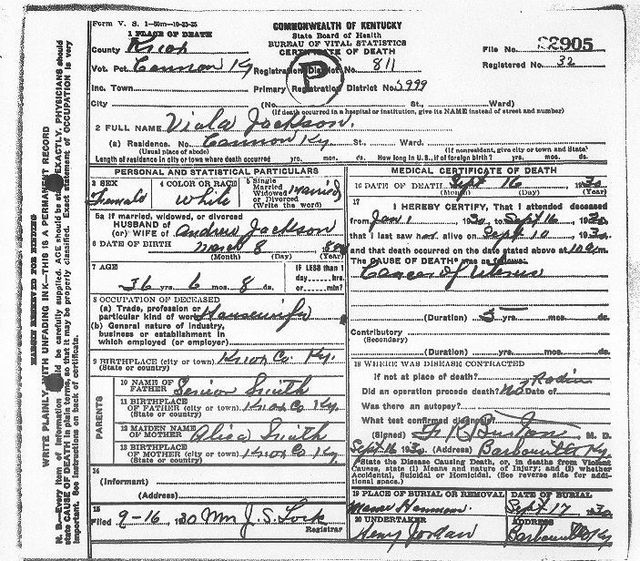 Form V. S. 1-50m-19-23-25
COMMONWEALTH OF KENTUCKY
State Board of Health
BUREAU OF VITAL STATISTICS
CERTIFICATE OF DEATH
1 PLACE OF DEATH
County Knox
File No. 22905
Vot. Pct. Cannon Ky Registration District No. 811
Registered No. 32
P
Inc. Town Primary Registration District No. 5999
City (No. St., Ward)
(If death occurred in a hospital or institution, give its NAME instead of street and number)
2 FULL NAME Viola Jackson
(a) Residence. No. Cannon Ky. St., Ward.
(Usual place of abode) (If nonresident, give city or town and State)
Length of residence in city or town where death occurred yrs. mos. ds. How long in U.S., if of foreign birth? yrs. mos. ds.
MARGIN RESERVED FOR BINDING
WRITE PLAINLY WITH UNFADING INK—THIS IS A PERMANENT RECORD
N. B.—Every item of information should be carefully supplied. AGE should be stated EXACTLY. PHYSICIANS should
state CAUSE OF DEATH in plain terms, so that it may be properly classified. Exact statement of OCCUPATION is very
important. See instructions on back of certificate.
PERSONAL AND STATISTICAL PARTICULARS
3 SEX 4 COLOR OR RACE White
5 Single
Married
Widowed
or Divorced
(Write the word)
married
5a If married, widowed, or divorced
HUSBAND of
(or) WIFE of Andrew Jackson
6 DATE OF BIRTH March 8
(Month) (Day) (Year)
7 AGE
36 yrs. 6 mos. 8 ds.
IF LESS than 1
day hrs.
or min?
8 OCCUPATION OF DECEASED
(a) Trade, profession or
particular kind of work Housewife
(b) General nature of industry,
business or establishment in
which employed (or employer)
9 BIRTHPLACE (city or town) Knox Co Ky.
(State or country)
PARENTS
10 NAME OF
FATHER Smith
11 BIRTHPLACE
OF FATHER (city or town) Knox Co Ky.
(State or country)
12 MAIDEN NAME
OF MOTHER Smith
13 BIRTHPLACE
OF MOTHER (city or town) Knox Co Ky.
(State or country)
14
(Informant)
(Address)
15
Filed 9-16 1930 J. S. Lock
Registrar
MEDICAL CERTIFICATE OF DEATH
16 DATE OF DEATH Sept 16 1930
(Month) (Day) (Year)
17
I HEREBY CERTIFY, That I attended deceased
from Jan 1 1930 to Sept 16, 1930
that I last saw her alive on Sept 10, 1930
and that death occurred on the date stated above at 10 am.
The CAUSE OF DEATH* was as follows:
Cancer of Uterus
(Duration) 5 yrs. mos. ds.
Contributory
(Secondary)
(Duration) yrs. mos. ds.
18 WHERE WAS DISEASE CONTRACTED
If not at place of death?
Did an operation precede death? No Date of
Was there an autopsy?
What test confirmed diagnosis?
(Signed) M. D.
Sept 16 1930 (Address) Barbourville Ky
*State the Disease Causing Death, or, in deaths from Violent
Causes, state (1) Means and nature of Injury; and (2) whether
Accidental, Suicidal or Homicidal. (See reverse side for additional space.)
19 PLACE OF BURIAL OR REMOVAL DATE OF BURIAL
Sept 17 1930
20 UNDERTAKER ADDRESS
Henry Jordan Barbourville Ky